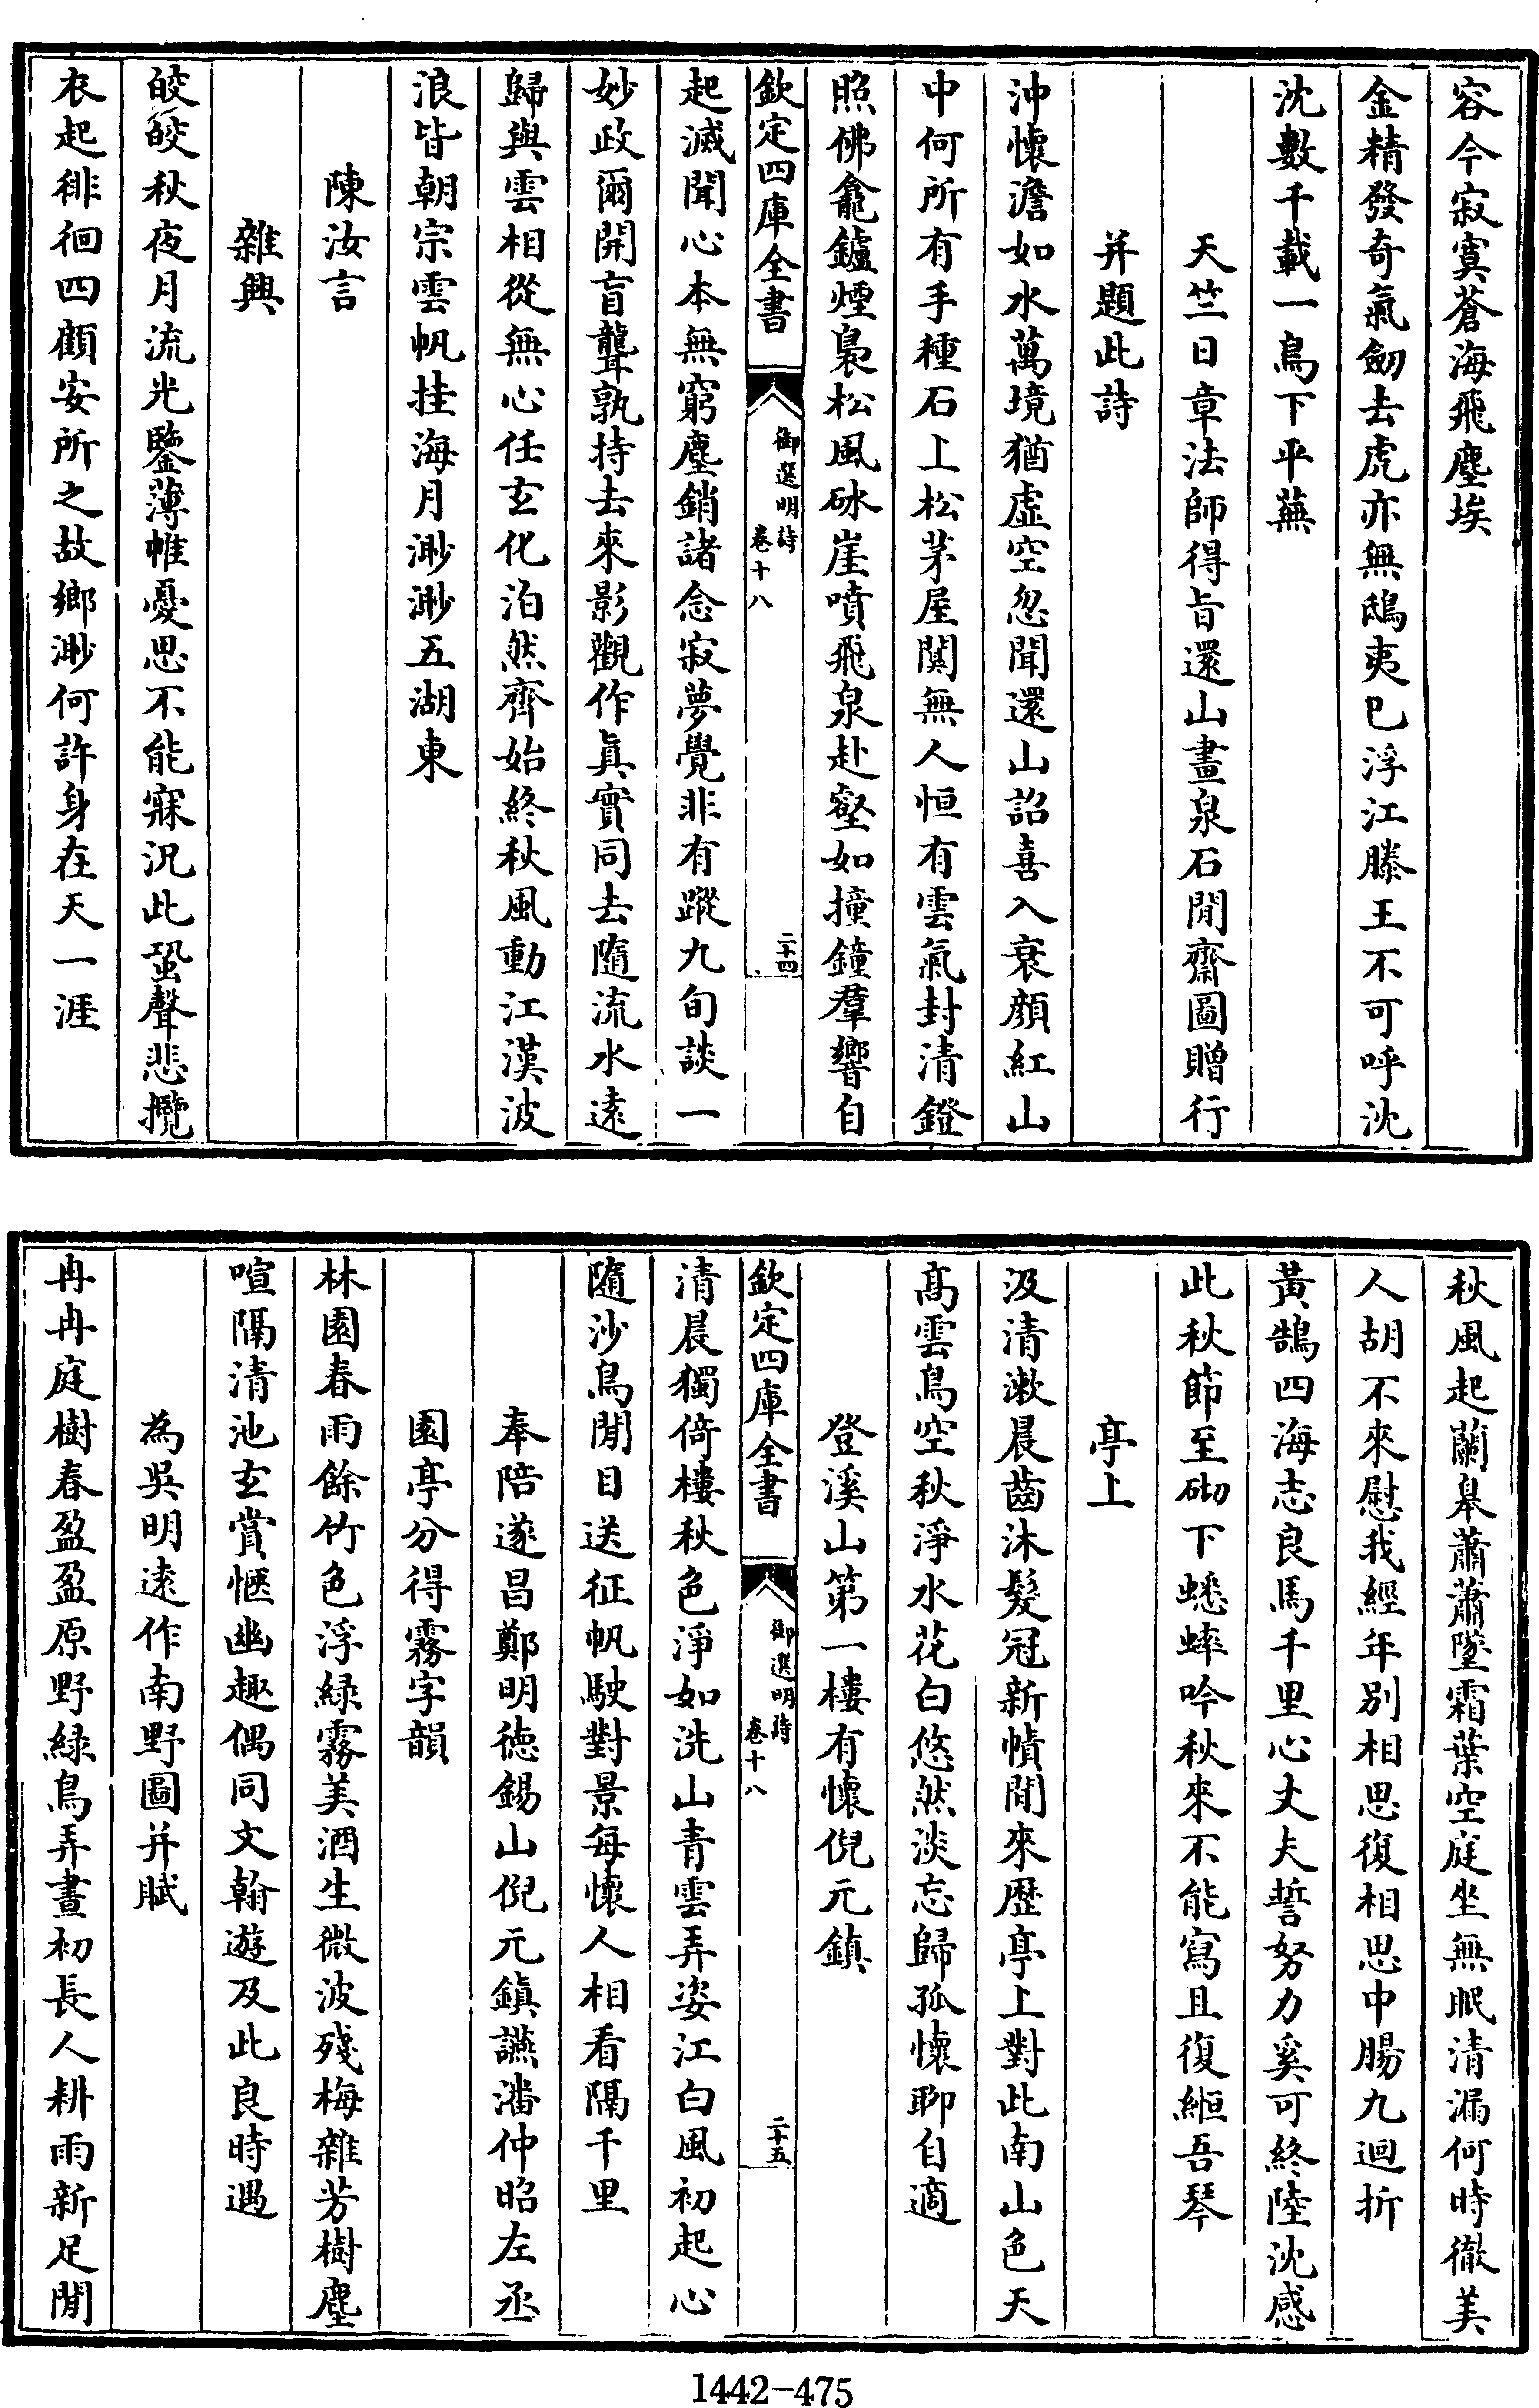 容今寂寞蒼海飛塵埃
金精發奇氣劒去虎亦無鴟夷已浮江滕王不可呼沈
沈數千載一鳥下平蕪
天竺日章法師得旨還山畫泉石閒齋圖贈行
并題此詩
沖懷澹如水萬境猶虛空忽聞還山詔喜入衰顔紅山
中何所有手種石上松茅屋闃無人恒有雲氣封清鐙
照佛龕鑪煙裊松風砯崖噴飛泉赴壑如撞鐘羣響自
欽定四庫全書
御選明詩
卷十八
二十四
起滅聞心本無窮塵銷諸念寂夢覺非有蹤九旬談一
妙政爾開盲聾孰持去來影觀作真實同去隨流水遠
歸與雲相從無心任玄化泊然齊始終秋風動江漢波
浪皆朝宗雲帆挂海月渺渺五湖東
陳汝言
雜興
皎皎秋夜月流光鑒薄帷憂思不能寐況此蛩聲悲攬
衣起徘徊四顧安所之故鄉渺何許身在天一涯
秋風起蘭皋蕭蕭墜霜葉空庭坐無眠清漏何時徹美
人胡不來慰我經年別相思復相思中腸九迴折
黃鵠四海志良馬千里心丈夫誓努力奚可終陸沈感
此秋節至砌下蟋蟀吟秋來不能寫且復緪吾琴
亭上
汲清漱晨齒沐髮冠新幘閒來歴亭上對此南山色天
髙雲鳥空秋淨水花白悠然淡忘歸孤懷聊自適
登溪山第一樓有懷倪元鎮
欽定四庫全書
御選明詩
卷十八
二十五
清晨獨倚樓秋色淨如洗山青雲弄姿江白風初起心
隨沙鳥閒目送征帆駛對景每懷人相看隔千里
奉陪遂昌鄭明徳錫山倪元鎮讌潘仲昭左丞
園亭分得霧字韻
林園春雨餘竹色浮緑霧美酒生微波殘梅雜芳樹塵
喧隔清池玄賞愜幽趣偶同文翰遊及此良時遇
為吳明遠作南野圖并賦
冉冉庭樹春盈盈原野緑鳥弄晝初長人耕雨新足閒
1442-475